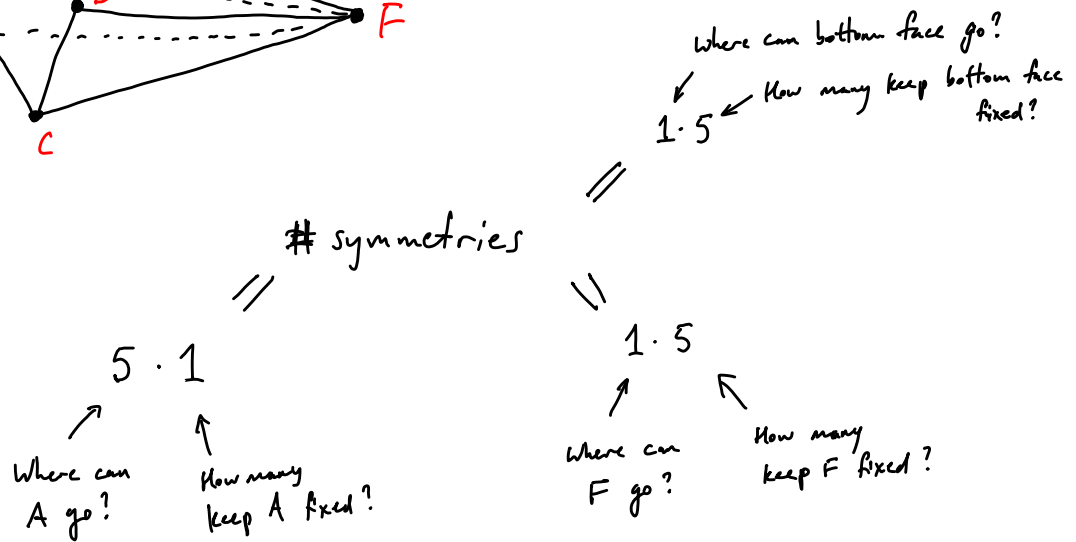 F
C
Where can bottom face go?
How many keep bottom face
fixed?
1·5
# symmetries
5·1
1·5
Where can
A go?
How many
keep A fixed?
Where can
F go?
How many
keep F fixed?